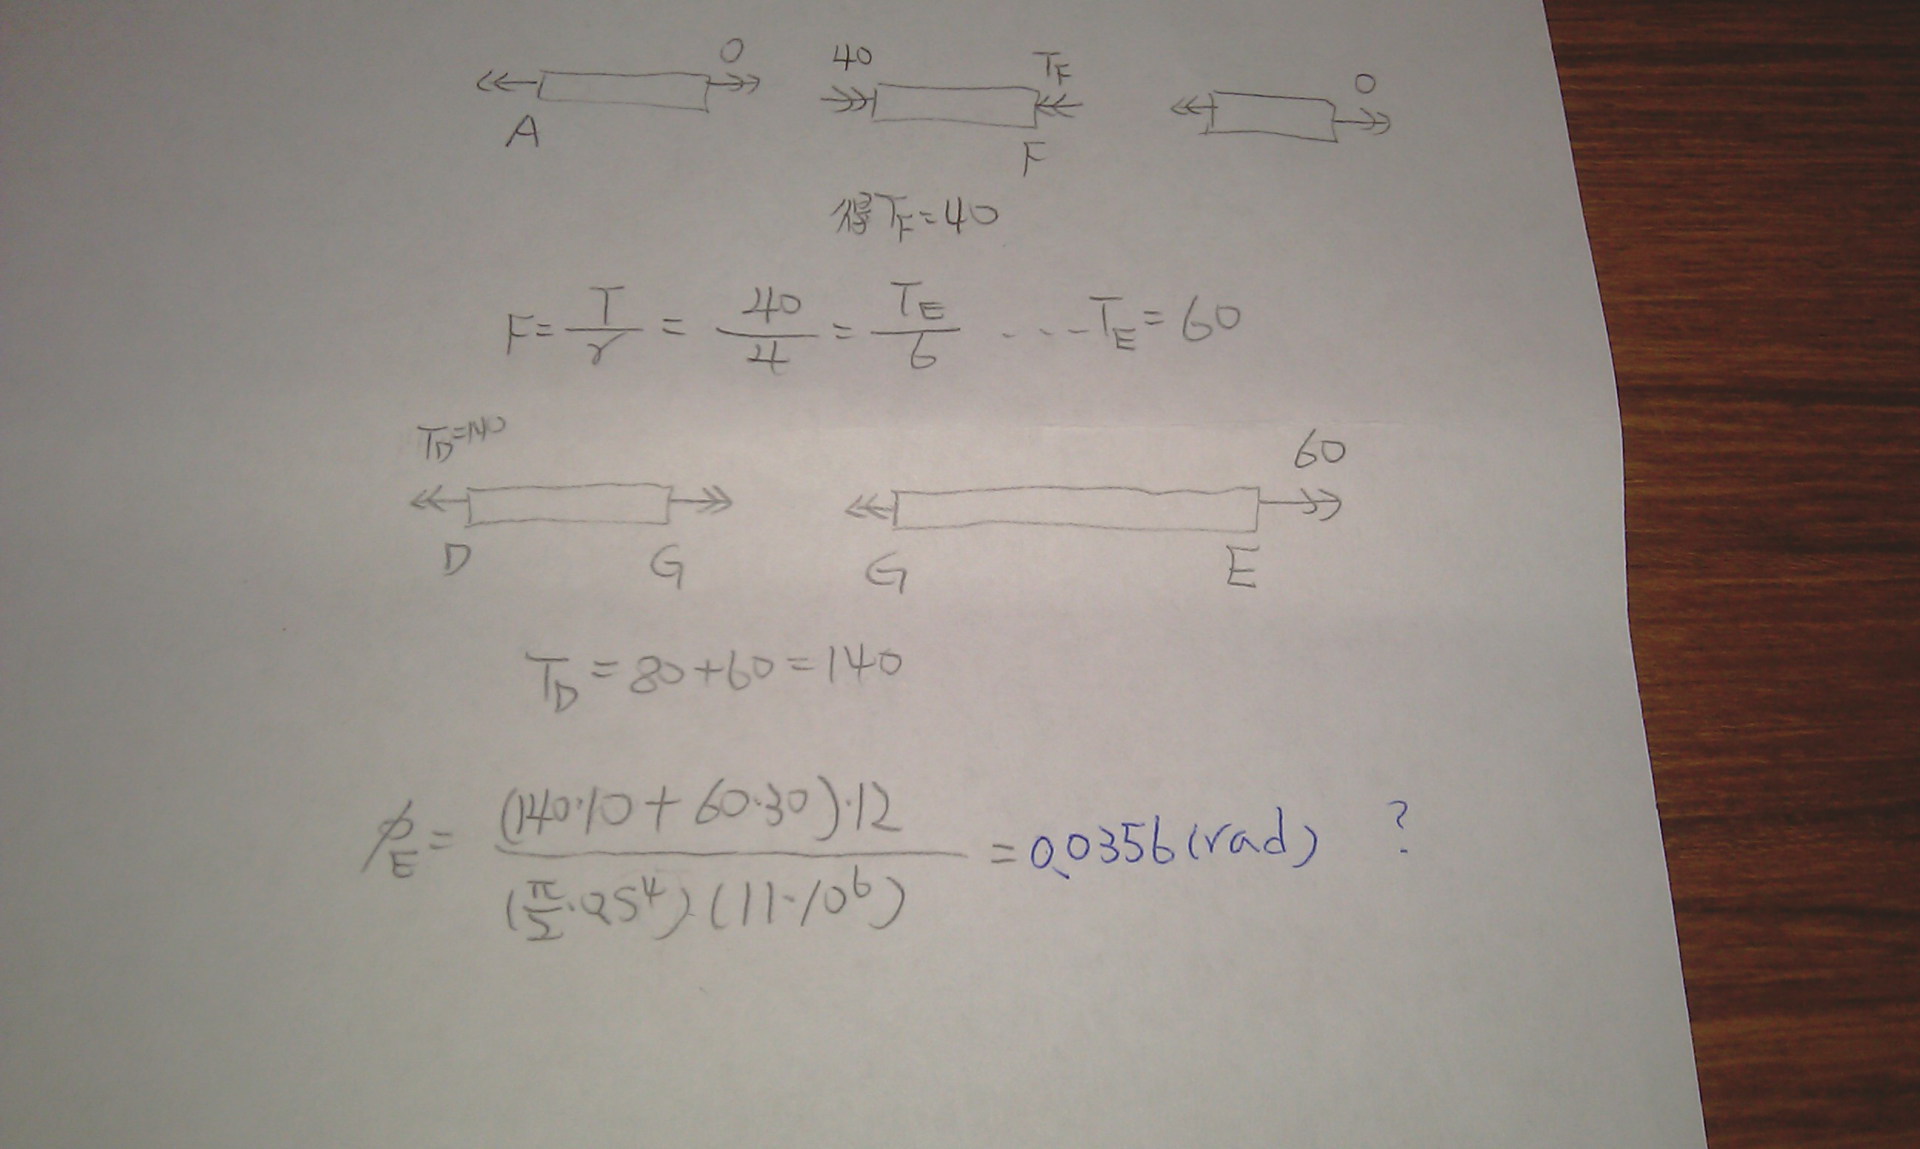 0 40 T_F 0
A F
得 T_F = 40
F = T/r = 40/4 = T_E/6 ... T_E = 60
T_D = 140 60
D G G E
T_D = 80 + 60 = 140
φ_E = (140·10 + 60·30)·12 / (π/2·0.5^4)·(11·10^6) = 0.0356 (rad) ?